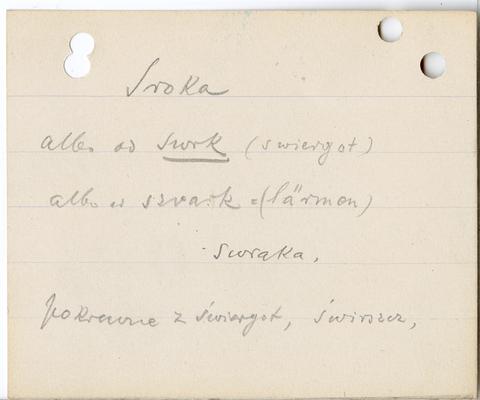 Sroka
albo od swrk (swiergot)
albo od szvark = (lärmen)
swraka,
pokrewne z świergot, świrszcz,